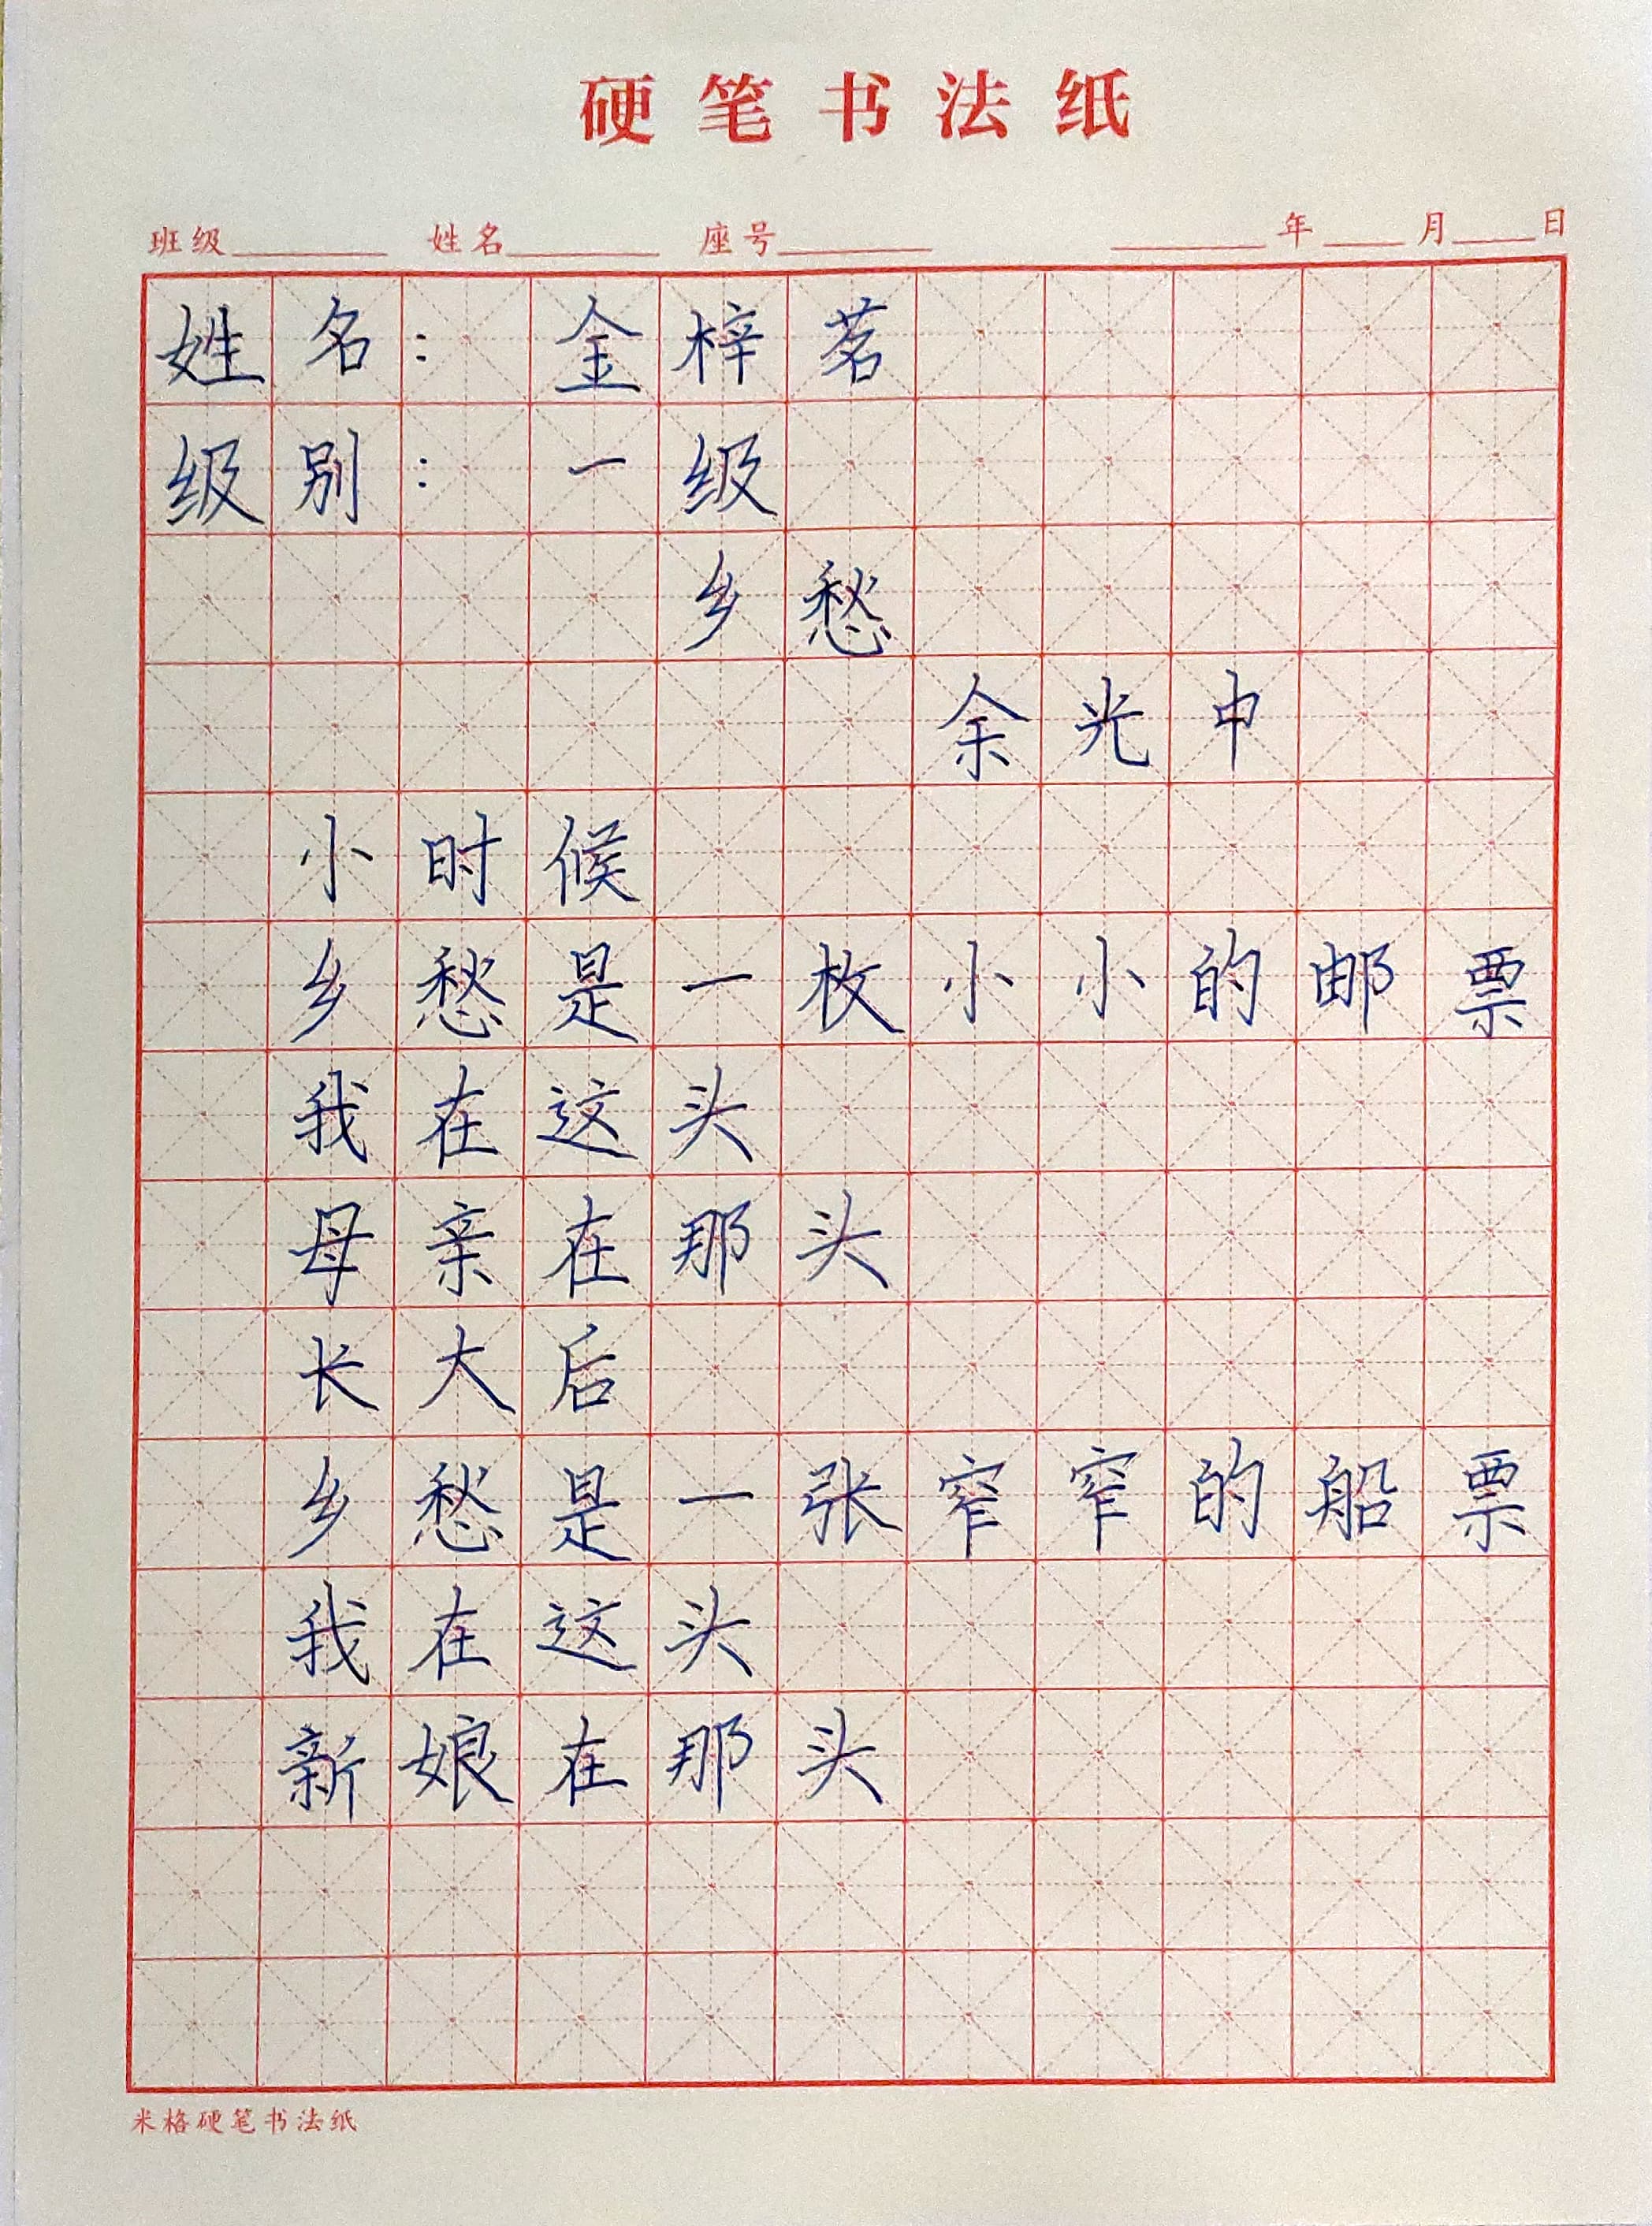 硬笔书法纸
班级 姓名 座号 年 月 日
姓名：金梓茗
级别：一级
乡愁
余光中
小时候
乡愁是一枚小小的邮票
我在这头
母亲在那头
长大后
乡愁是一张窄窄的船票
我在这头
新娘在那头
米格硬笔书法纸